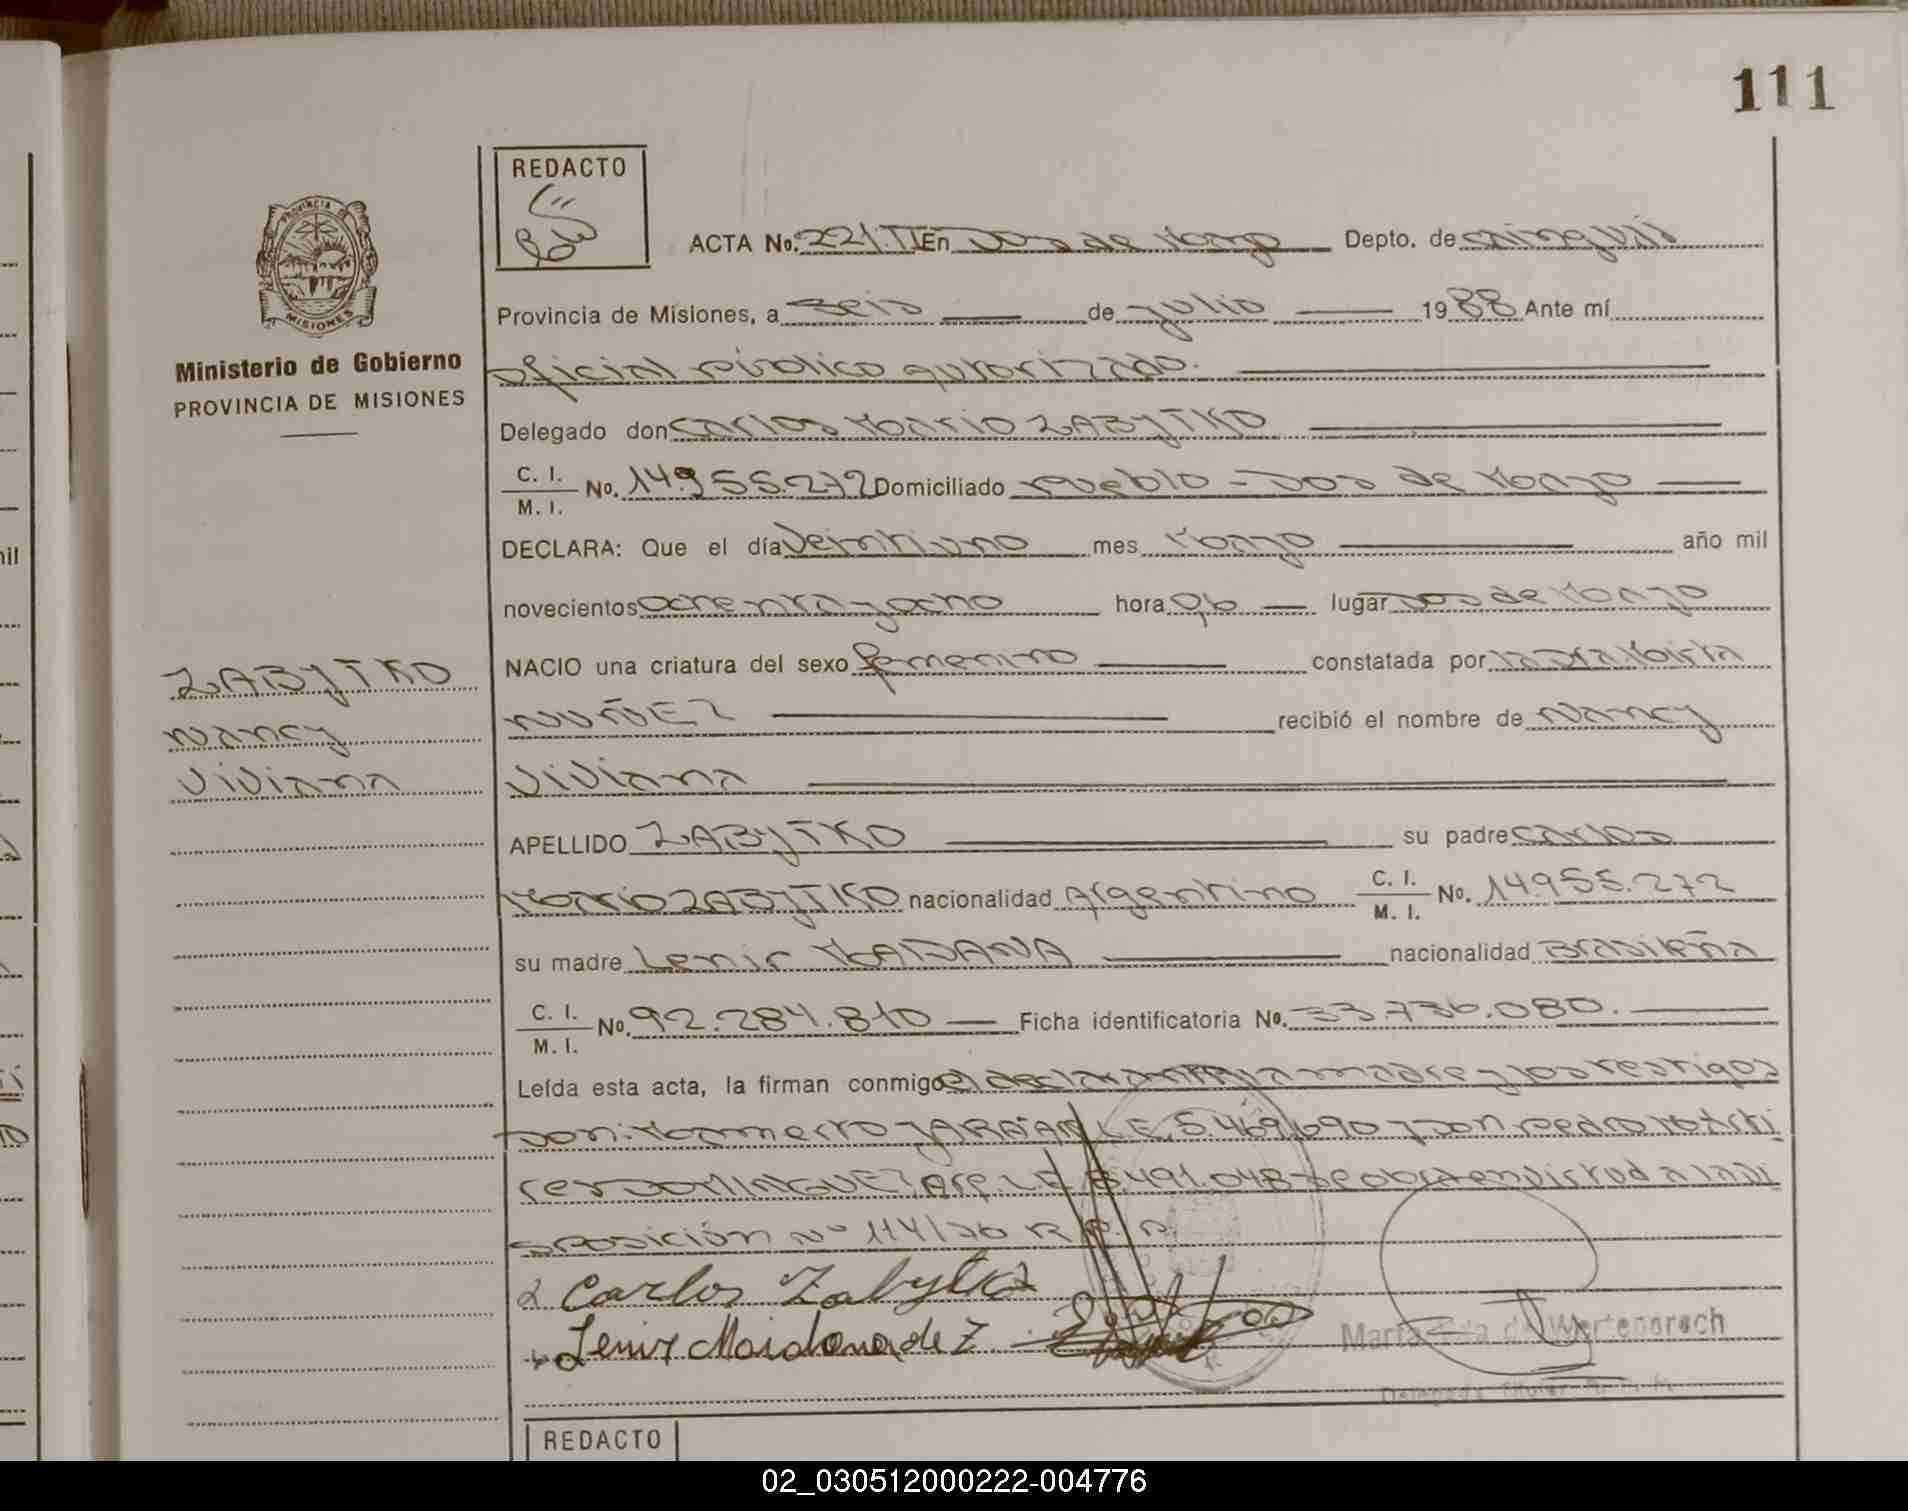 111
REDACTO
ACTA No. 221.TI En Dos de Mayo Depto. de Cainguás
Provincia de Misiones, a seis de julio 1988 Ante mí
oficial público autorizado.
Delegado don Carlos Mario ZABYTKO
C. I. / M. I. No. 14.955.272 Domiciliado Pueblo - Dos de Mayo
DECLARA: Que el día veintiuno mes Mayo año mil
novecientos ochenta y ocho hora 06 lugar Dos de Mayo
NACIO una criatura del sexo femenino constatada por la Dra Mirta
NUÑEZ recibió el nombre de Nancy
Viviana
APELLIDO ZABYTKO su padre Carlos
Mario ZABYTKO nacionalidad Argentino C. I. / M. I. No. 14.955.272
su madre Lenir MAIDANA nacionalidad Brasileña
C. I. / M. I. No. 92.284.810 Ficha identificatoria No. 33.736.080.
Leída esta acta, la firman conmigo el declarante, la madre y los testigos
Don: L.E. 5.469.690 y don Pedro
DOMINGUEZ, Arg. L.E. 8.491.048 se obra en virtud a la di
sposición Nº 114/76 R.P.P.
Carlos Zabytko
Lenir Maidana de Z
María de Wertenbroch
Delegada Titular R. P. P.
Provincia de
MISIONES
Ministerio de Gobierno
PROVINCIA DE MISIONES
ZABYTKO
Nancy
Viviana
REDACTO
02_030512000222-004776